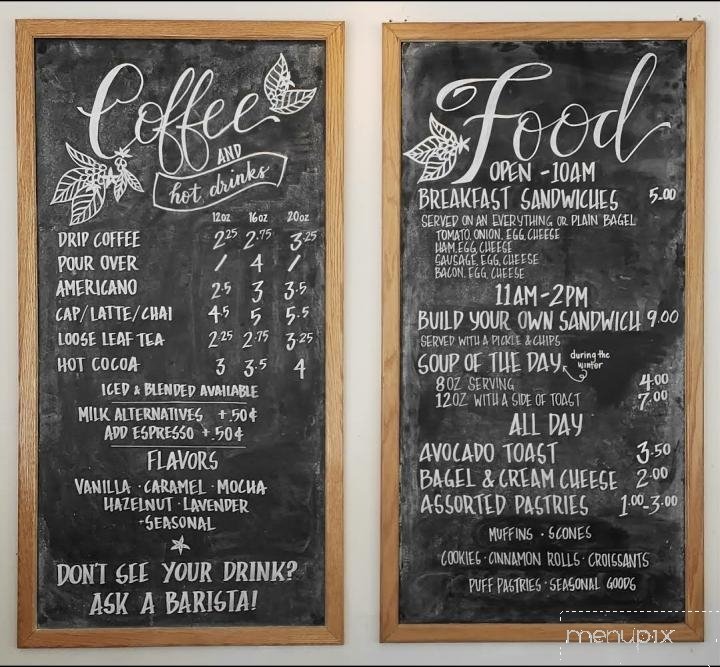 Coffee
AND
hot drinks
12oz 16oz 20oz
DRIP COFFEE 2.25 2.75 3.25
POUR OVER / 4 /
AMERICANO 2.5 3 3.5
CAP/LATTE/CHAI 4.5 5 5.5
LOOSE LEAF TEA 2.25 2.75 3.25
HOT COCOA 3 3.5 4
ICED & BLENDED AVAILABLE
MILK ALTERNATIVES +.50¢
ADD ESPRESSO +.50¢
FLAVORS
VANILLA · CARAMEL · MOCHA
HAZELNUT · LAVENDER
·SEASONAL
DON'T SEE YOUR DRINK?
ASK A BARISTA!
Food
OPEN -10AM
BREAKFAST SANDWICHES 5.00
SERVED ON AN EVERYTHING OR PLAIN BAGEL
TOMATO, ONION, EGG, CHEESE
HAM, EGG, CHEESE
SAUSAGE, EGG, CHEESE
BACON, EGG, CHEESE
11AM-2PM
BUILD YOUR OWN SANDWICH 9.00
SERVED WITH A PICKLE & CHIPS
SOUP OF THE DAY during the winter
8OZ SERVING 4.00
12OZ WITH A SIDE OF TOAST 7.00
ALL DAY
AVOCADO TOAST 3.50
BAGEL & CREAM CHEESE 2.00
ASSORTED PASTRIES 1.00-3.00
MUFFINS · SCONES
COOKIES · CINNAMON ROLLS · CROISSANTS
PUFF PASTRIES · SEASONAL GOODS
menupix